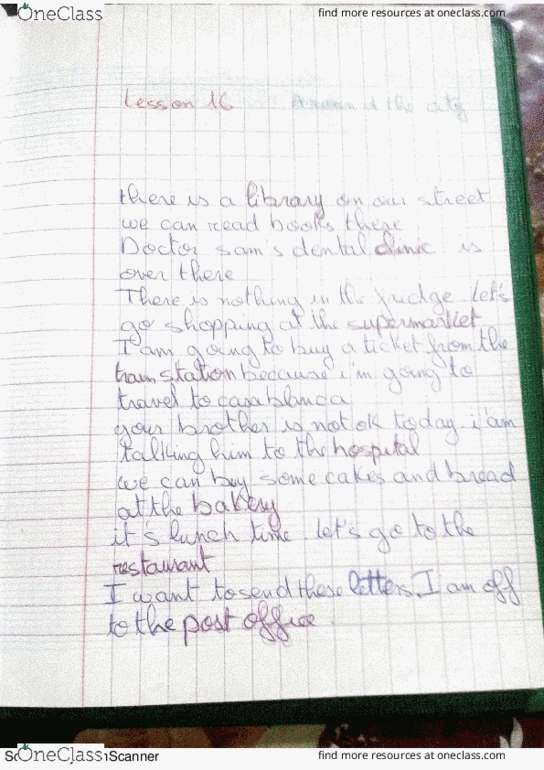 OneClass
find more resources at oneclass.com
Lesson 16 the city
there is a library on our street
we can read books there
Doctor Sam's dental clinic is
over there
There is nothing in the fridge. let's
go shopping at the supermarket
I am going to buy a ticket from the
train station because i'm going to
travel to casablanca
your brother is not ok today. i'am
talking him to the hospital
we can buy some cakes and bread
at the bakery
it's lunch time. let's go to the
restaurant
I want to send these letters. I am off
to the post office.
OneClass
Scanner
find more resources at oneclass.com